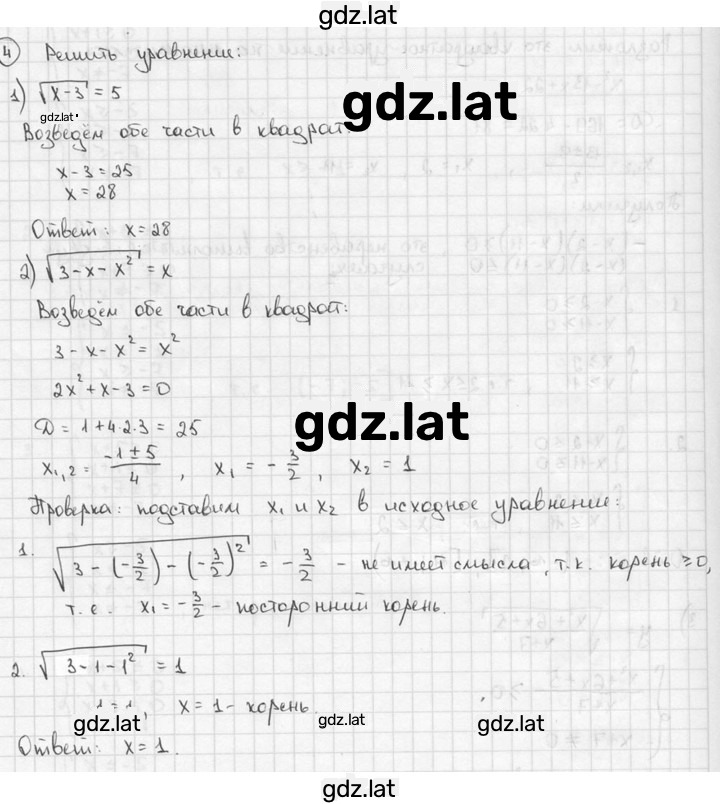 gdz.lat
4 Решить уравнение:
1) √x-3 = 5
gdz.lat
gdz.lat
Возведём обе части в квадрат:
x-3=25
x=28
Ответ: x=28
2) √3-x-x² = x
Возведём обе части в квадрат:
3-x-x²=x²
2x²+x-3=0
gdz.lat
D=1+4·2·3=25
x₁,₂= (-1±5)/4 , x₁ = -3/2 , x₂ = 1
Проверка: подставим x₁ и x₂ в исходное уравнение:
1. √3-(-3/2)-(-3/2)² = -3/2 - не имеет смысла, т.к. корень ≥0,
т.е. x₁=-3/2 - посторонний корень.
2. √3-1-1² = 1
1=1, x=1- корень.
gdz.lat
gdz.lat
gdz.lat
Ответ: x=1.
gdz.lat